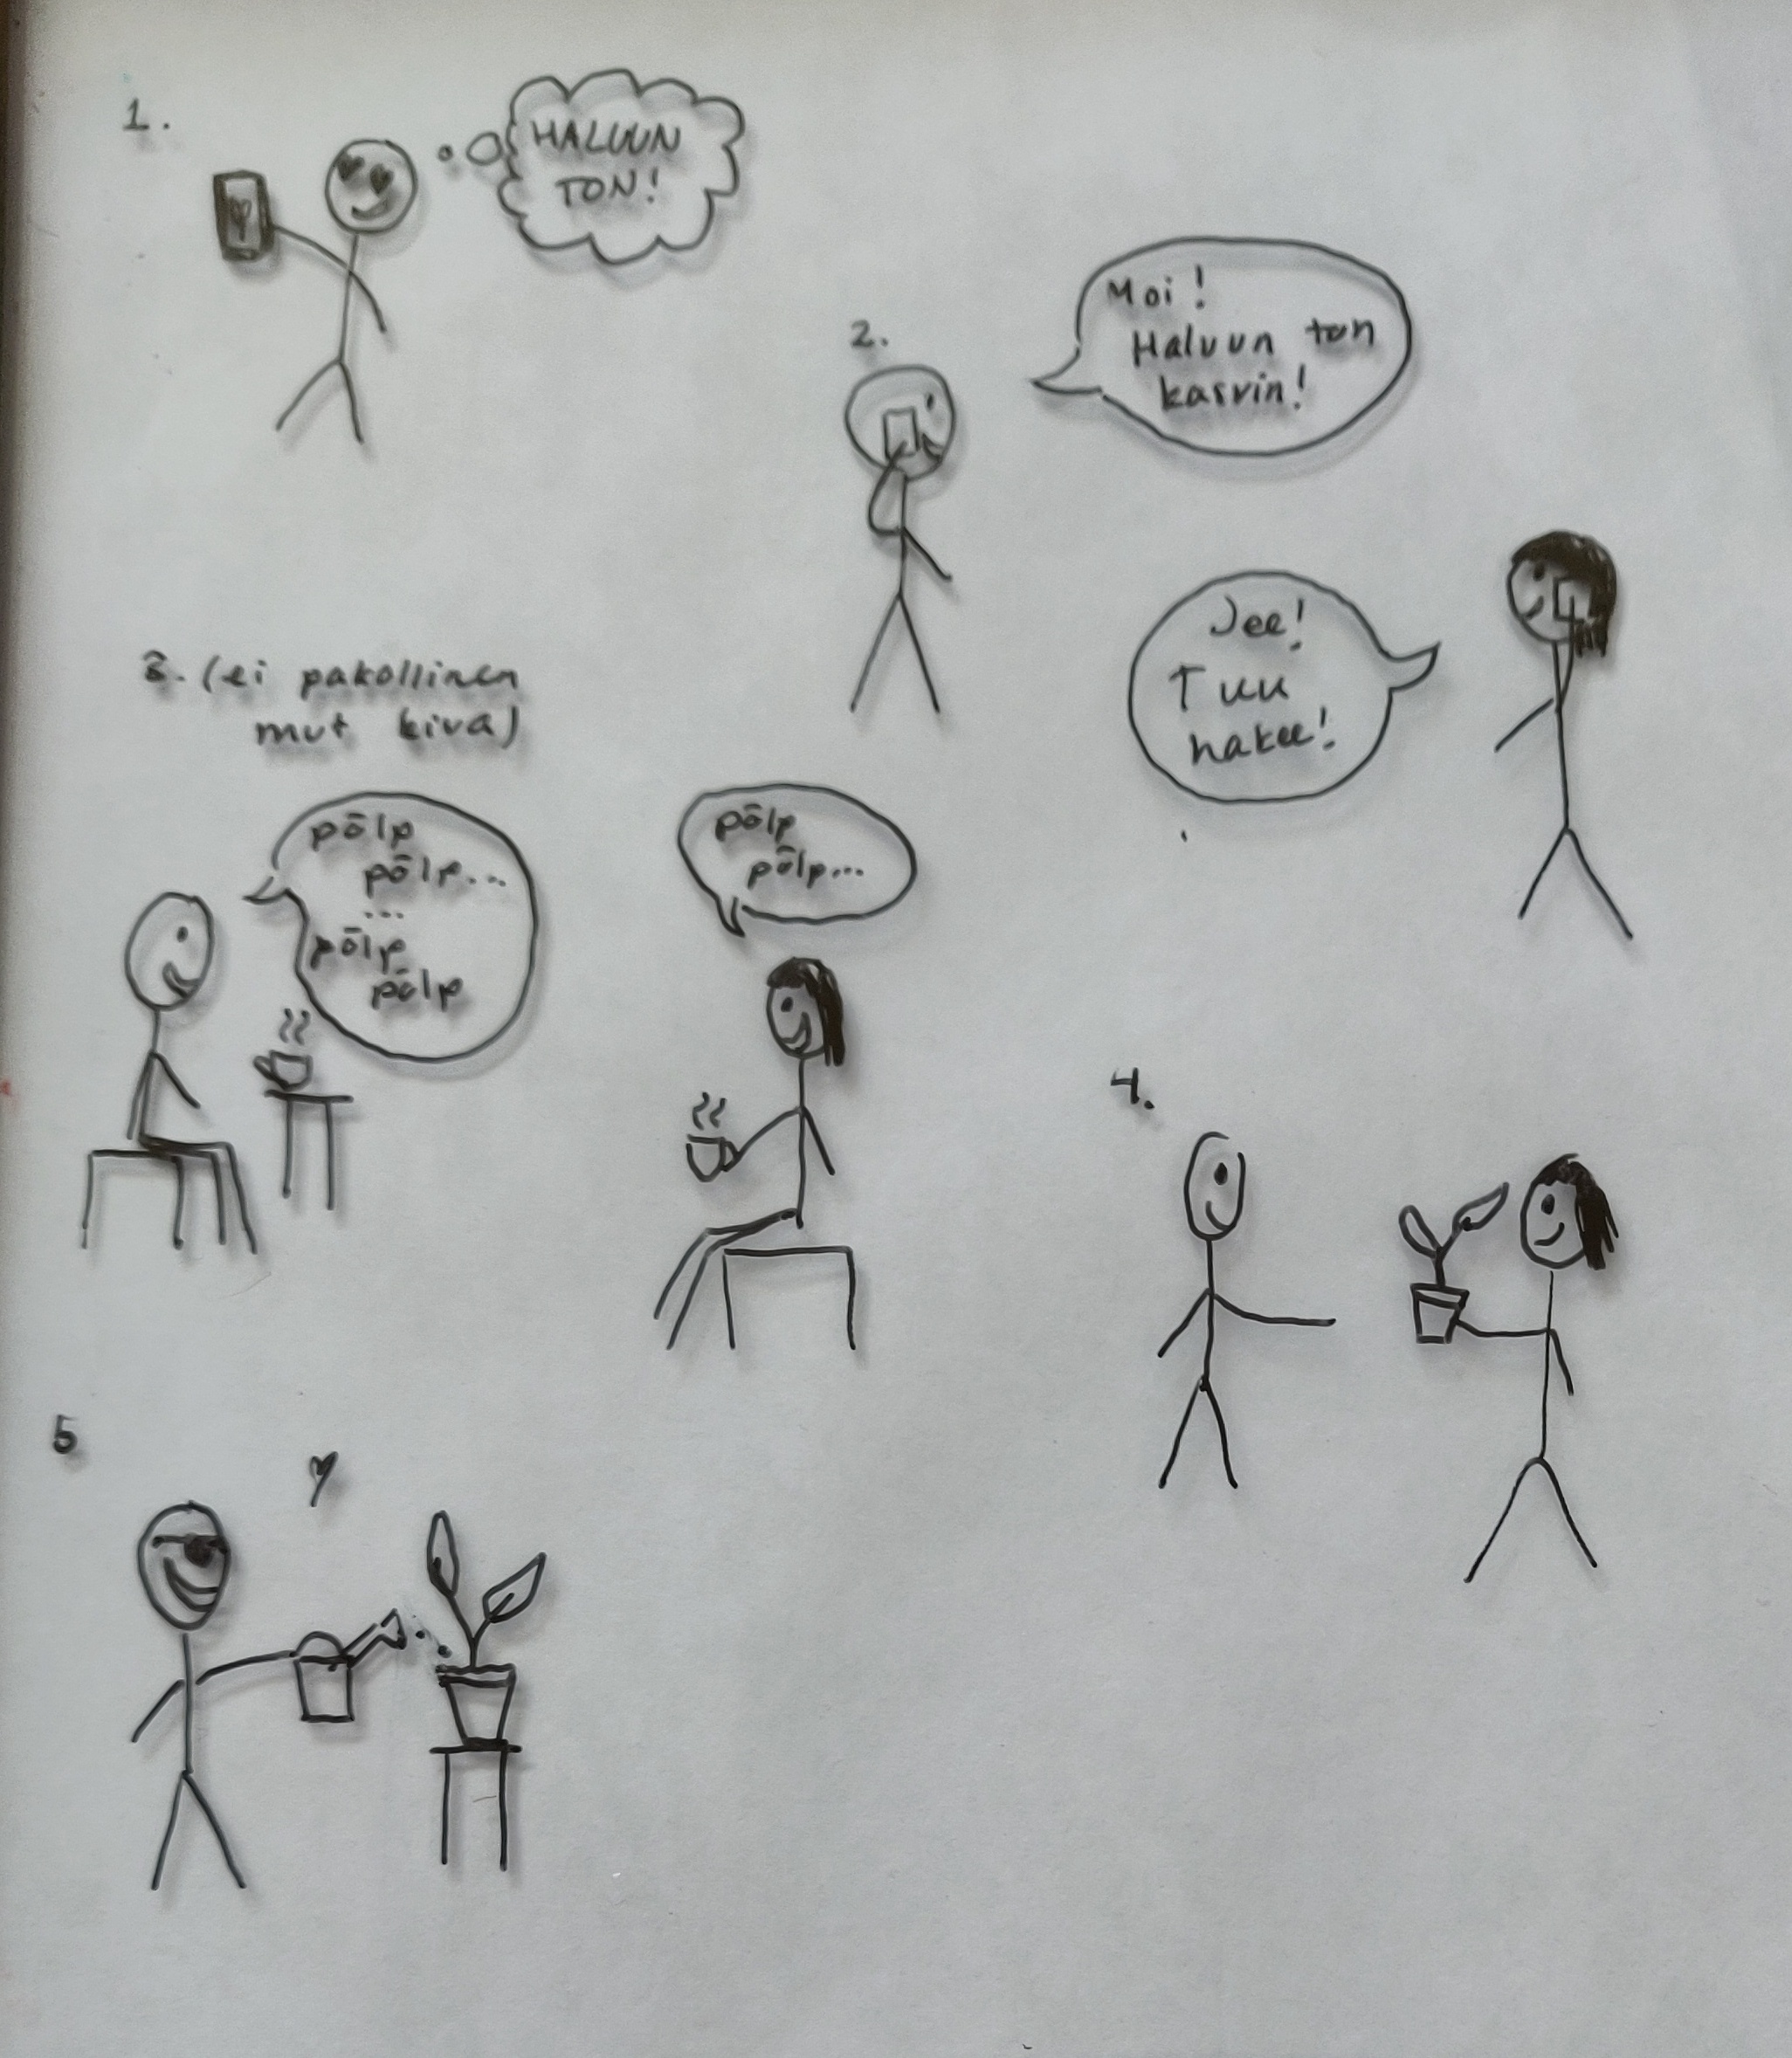 1.
HALUUN
TON!
2.
Moi!
Haluun ton
kasvin!
Jee!
Tuu
hakee!
3. (ei pakollinen
mut kiva)
pölp
pölp...
...
pölp
pölp
pölp
pölp...
4.
5